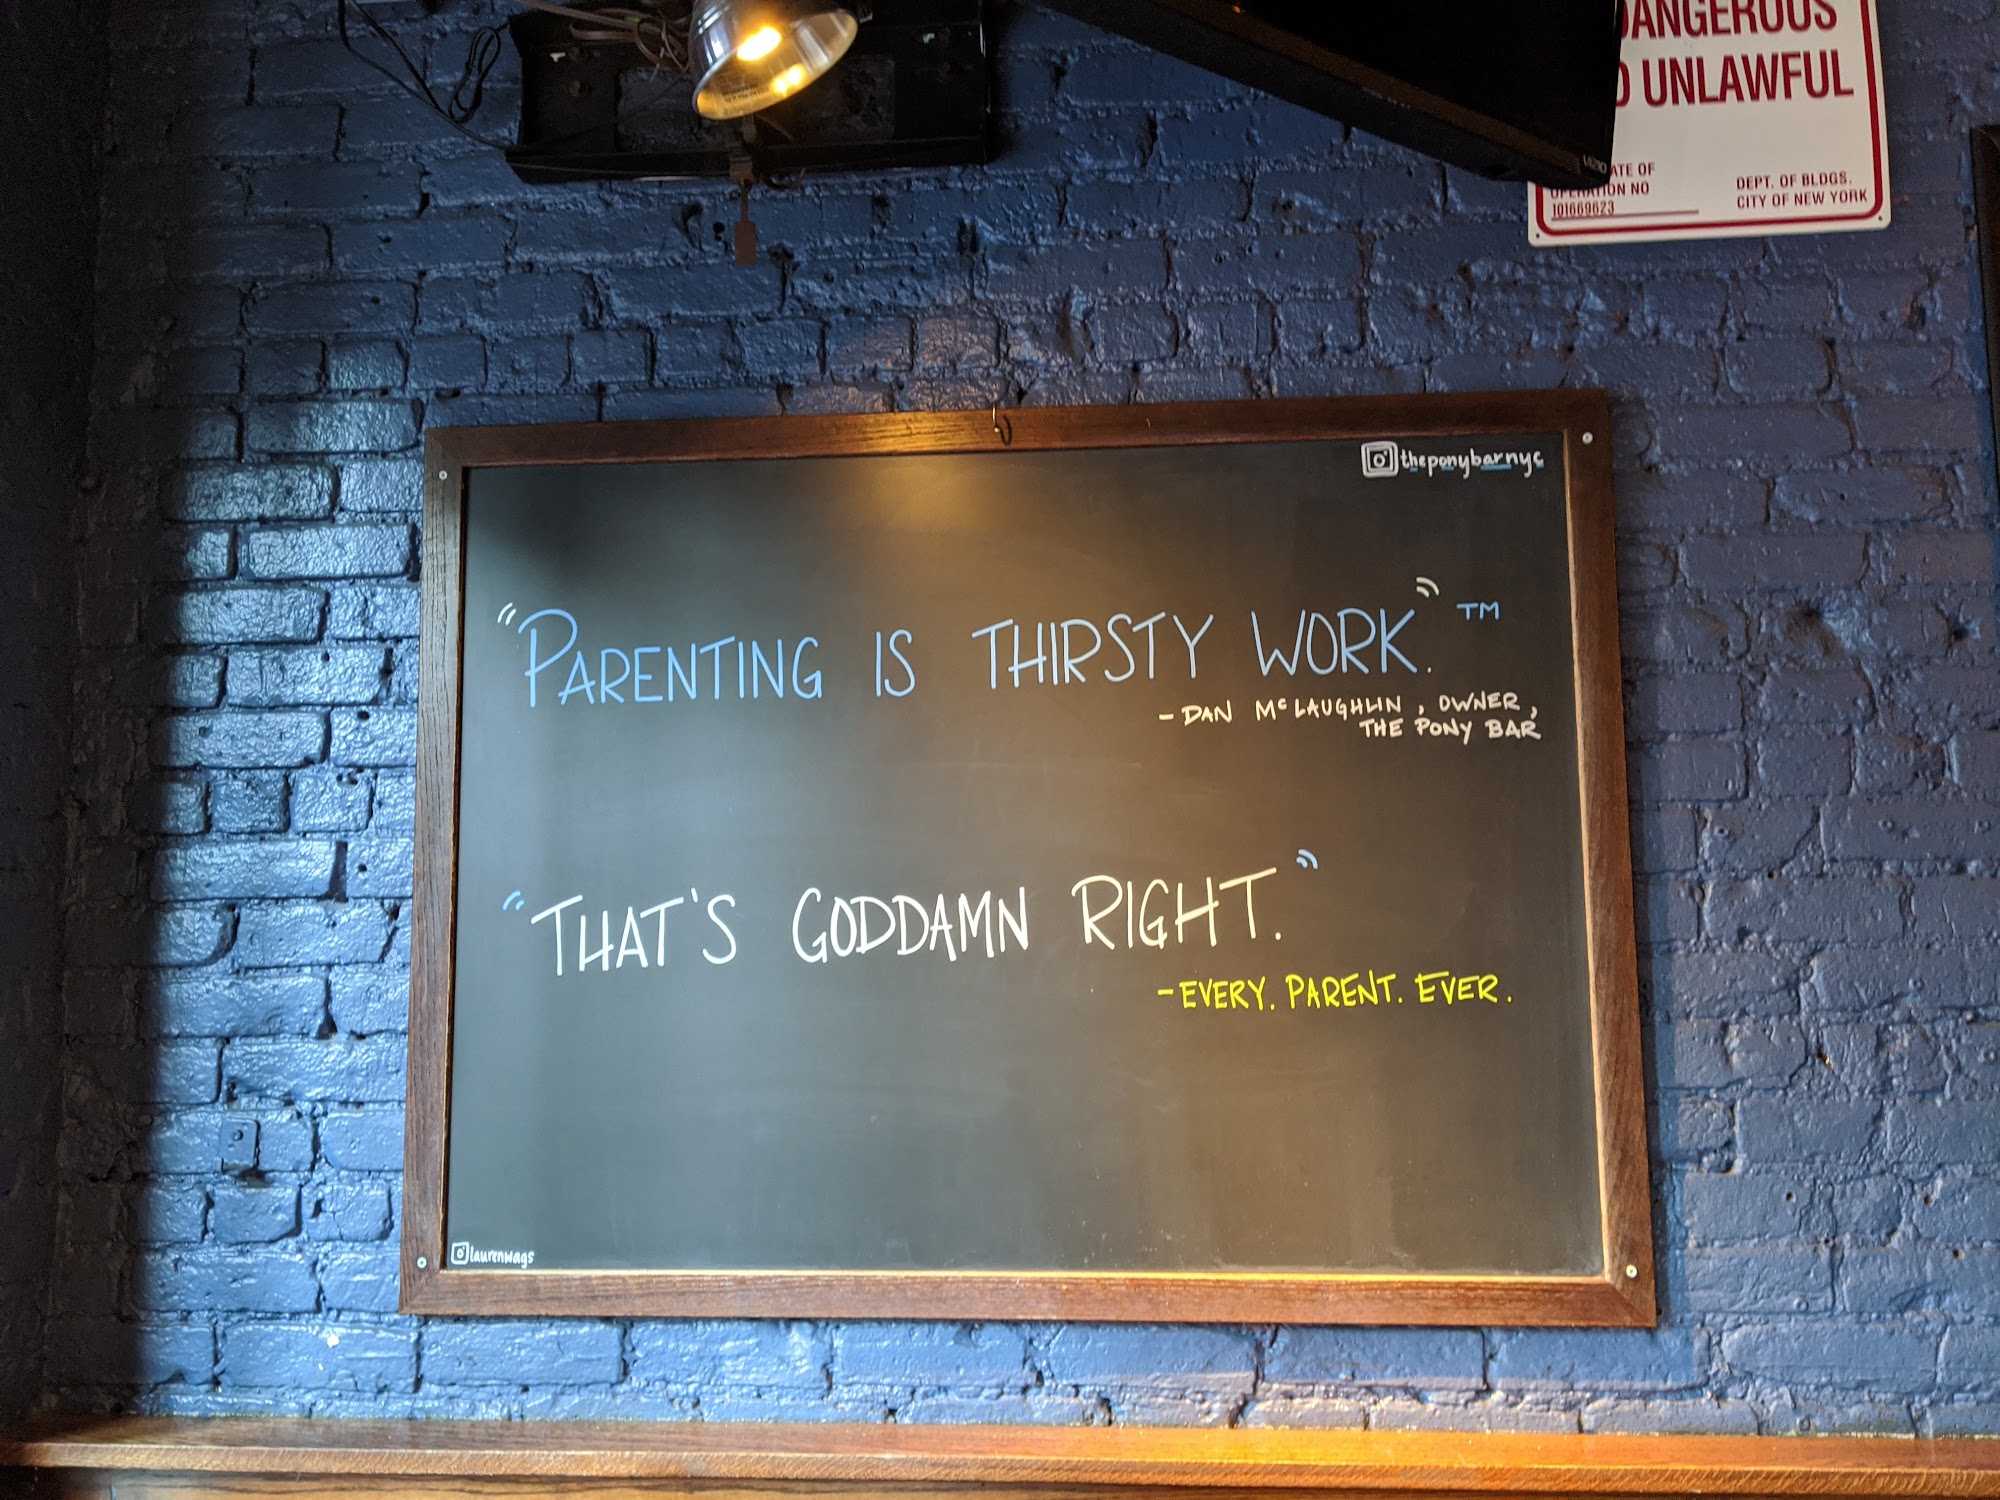 DANGEROUS
UNLAWFUL
OPERATION NO
101669623
DEPT. OF BLDGS.
CITY OF NEW YORK
VIZIO
theponybarnyc
"PARENTING IS THIRSTY WORK." TM
- DAN McLAUGHLIN, OWNER,
THE PONY BAR
"THAT'S GODDAMN RIGHT."
- EVERY. PARENT. EVER.
laurenwags